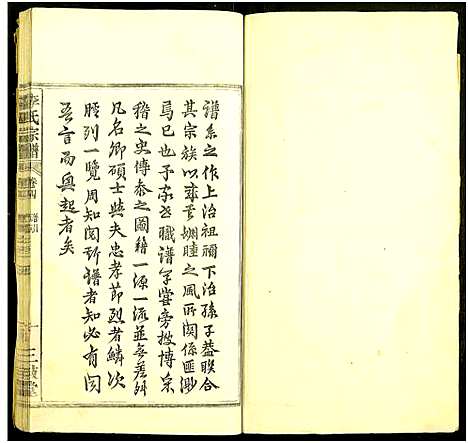 譜系之作上治祖禰下治孫子益聯合
其宗族以成其姻睦之風所関係匪渺
焉已也予家世職譜學嘗旁搜博采
稽之史傳泰之圖籍一源一流並無差舛
凡名卿碩士與夫忠孝節烈者鱗次
臚列一覽周知閱斯譜者知必有聞
吾言而興起者矣
李氏宗譜
卷四
三